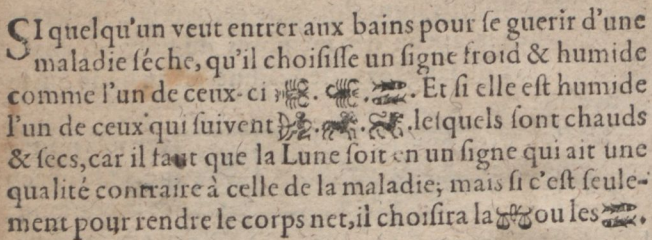 SI quelqu'un veut entrer aux bains pour ſe guerir d'une
maladie ſéche, qu'il choiſiſſe un ſigne froid & humide
comme l'un de ceux-ci ♋. ♏. ♓. Et ſi elle eſt humide
l'un de ceux qui ſuivent ♐. ♈. ♌. leſquels ſont chauds
& ſecs, car il faut que la Lune ſoit en un ſigne qui ait une
qualité contraire à celle de la maladie; mais ſi c'eſt ſeule-
ment pour rendre le corps net, il choiſira la ♎ ou les ♓.